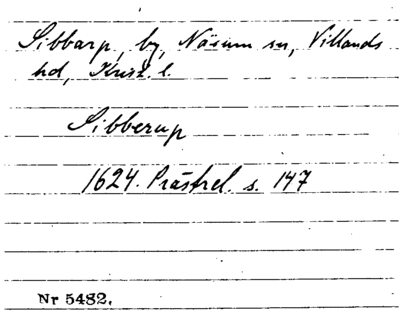 Sibbarp, by, Näsum sn, Villands
hd, Krist. l.
Sibberup
1624. Prästrel. s. 147
Nr 5482.